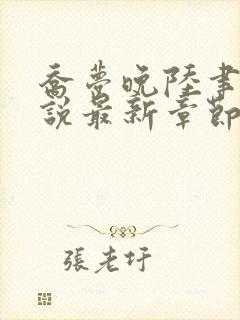 喬夢晚陸書
說最新章節
張老圩